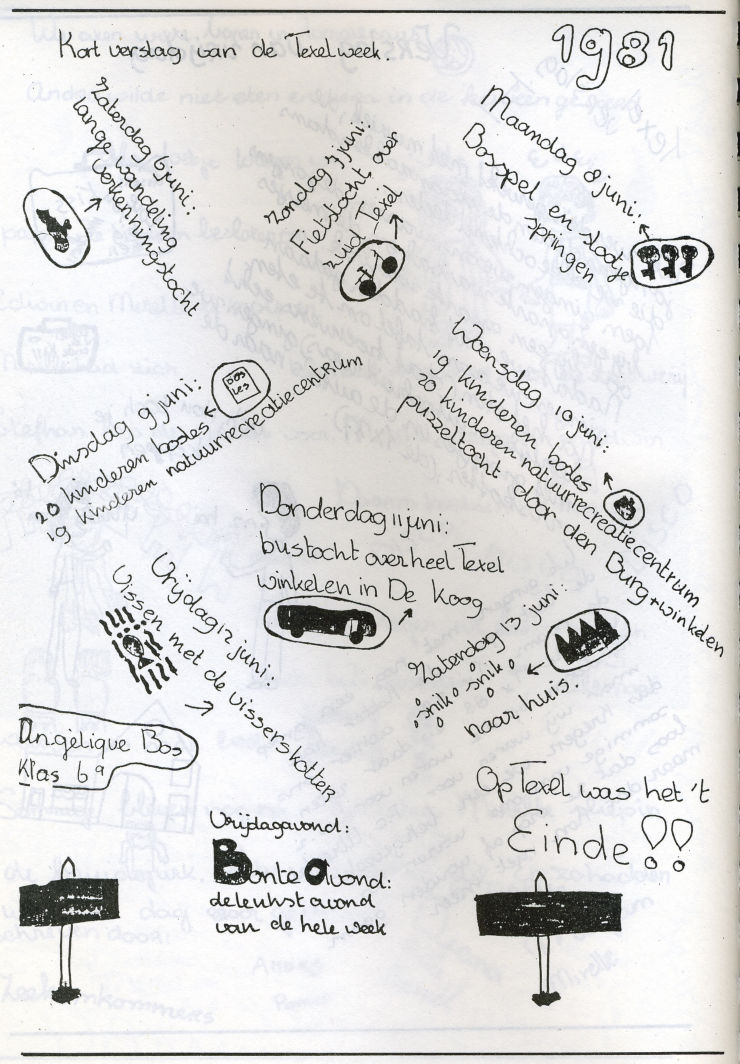 Kort verslag van de Texelweek.
1981
Zaterdag 6 juni:
lange wandeling
verkenningstocht
Zondag 7 juni:
Fietstocht over
zuid-Texel
Maandag 8 juni:
Bosspel en slootje
springen
Dinsdag 9 juni:
20 kinderen bosles
19 kinderen natuurrecreatiecentrum
BOS
LES
Woensdag 10 juni:
19 kinderen bosles
20 kinderen natuurrecreatiecentrum
puzzeltocht door den Burg + winkelen
Donderdag 11 juni:
bustocht over heel Texel
winkelen in De Koog
Vrijdag 12 juni:
Vissen met de visserskotter
Zaterdag 13 juni:
snik snik
naar huis.
Angelique Bos
Klas 6a
Vrijdagavond:
Bonte Avond:
de leukst avond
van de hele week
Op Texel was het 't
Einde!!